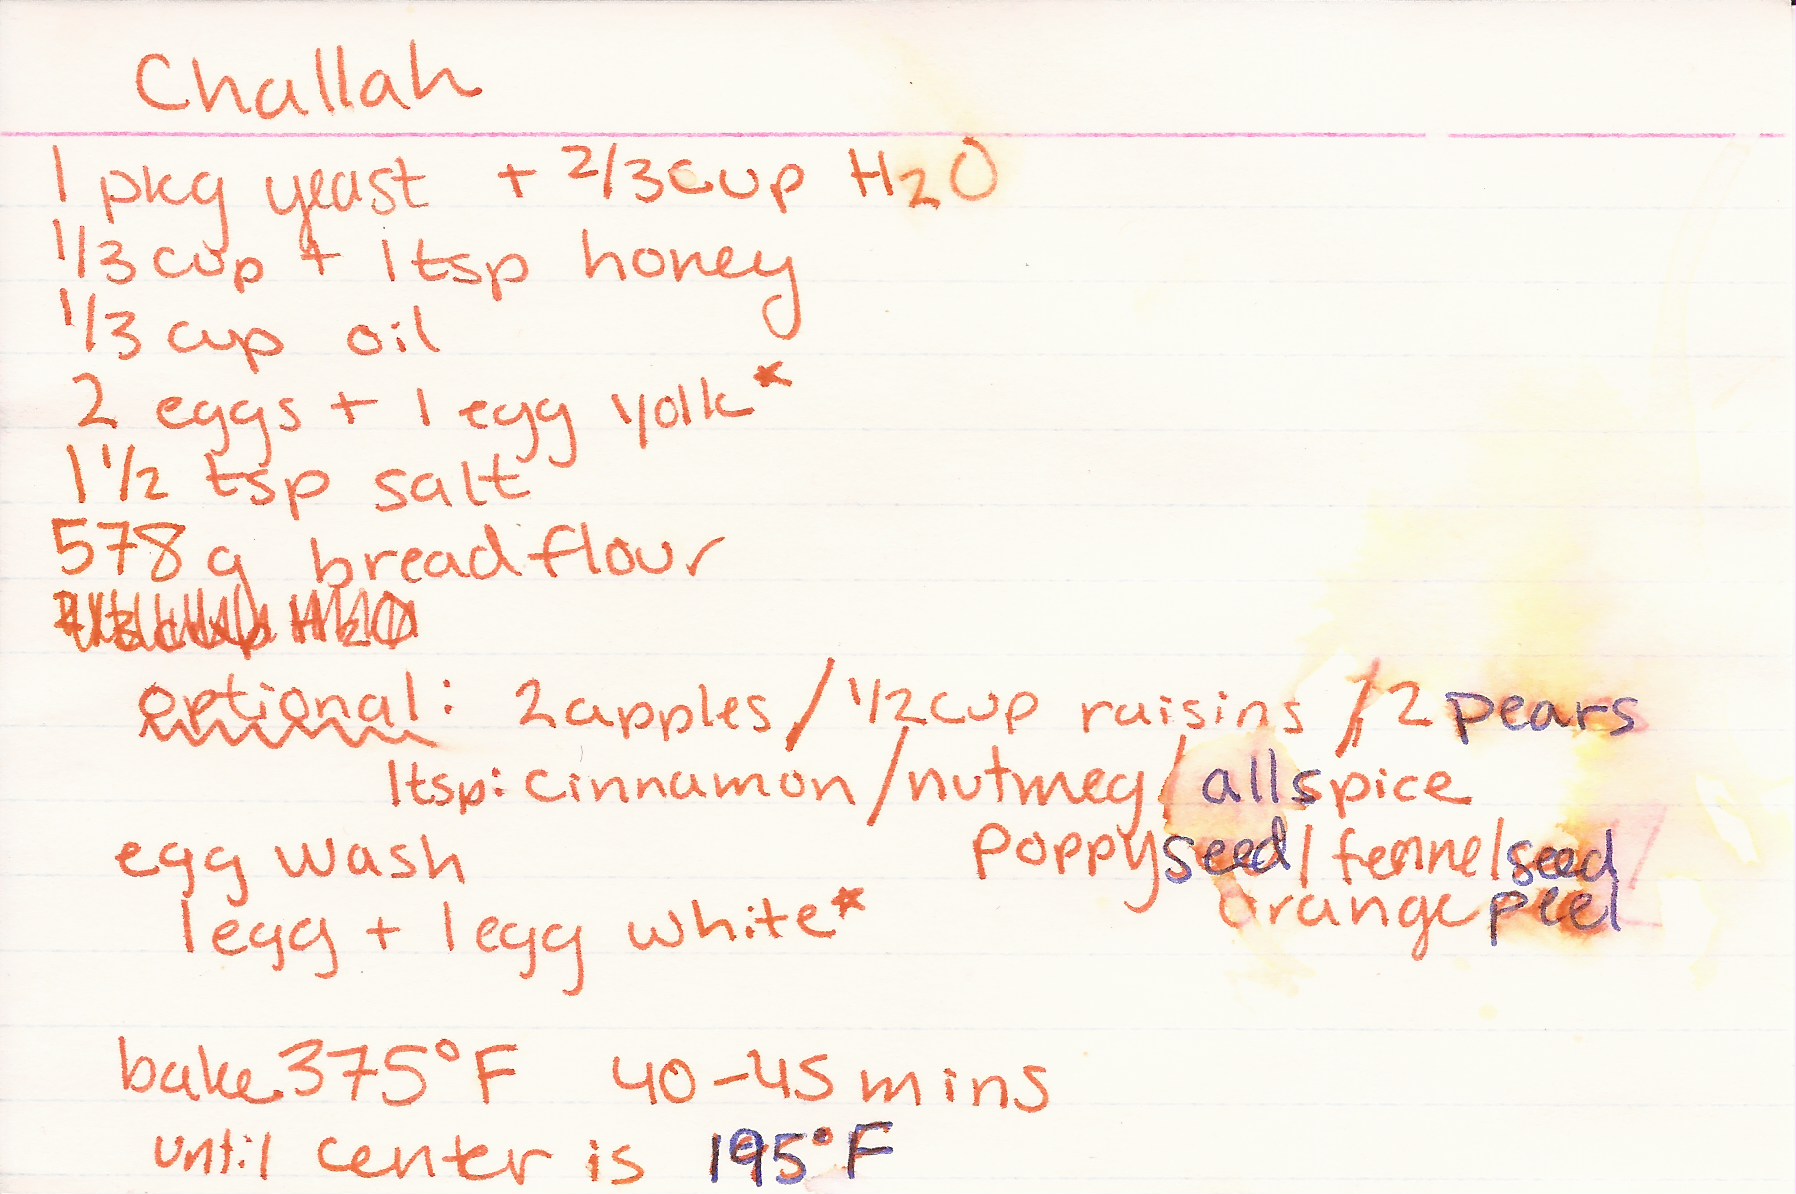 Challah
1 pkg yeast + 2/3 cup H2O
1/3 cup + 1 tsp honey
1/3 cup oil
2 eggs + 1 egg yolk*
1 1/2 tsp salt
578 g bread flour
optional: 2 apples / 1/2 cup raisins / 2 pears
1 tsp: cinnamon / nutmeg / allspice
poppyseed / fennelseed
orange peel
egg wash
1 egg + 1 egg white*
bake 375°F 40-45 mins
until center is 195°F